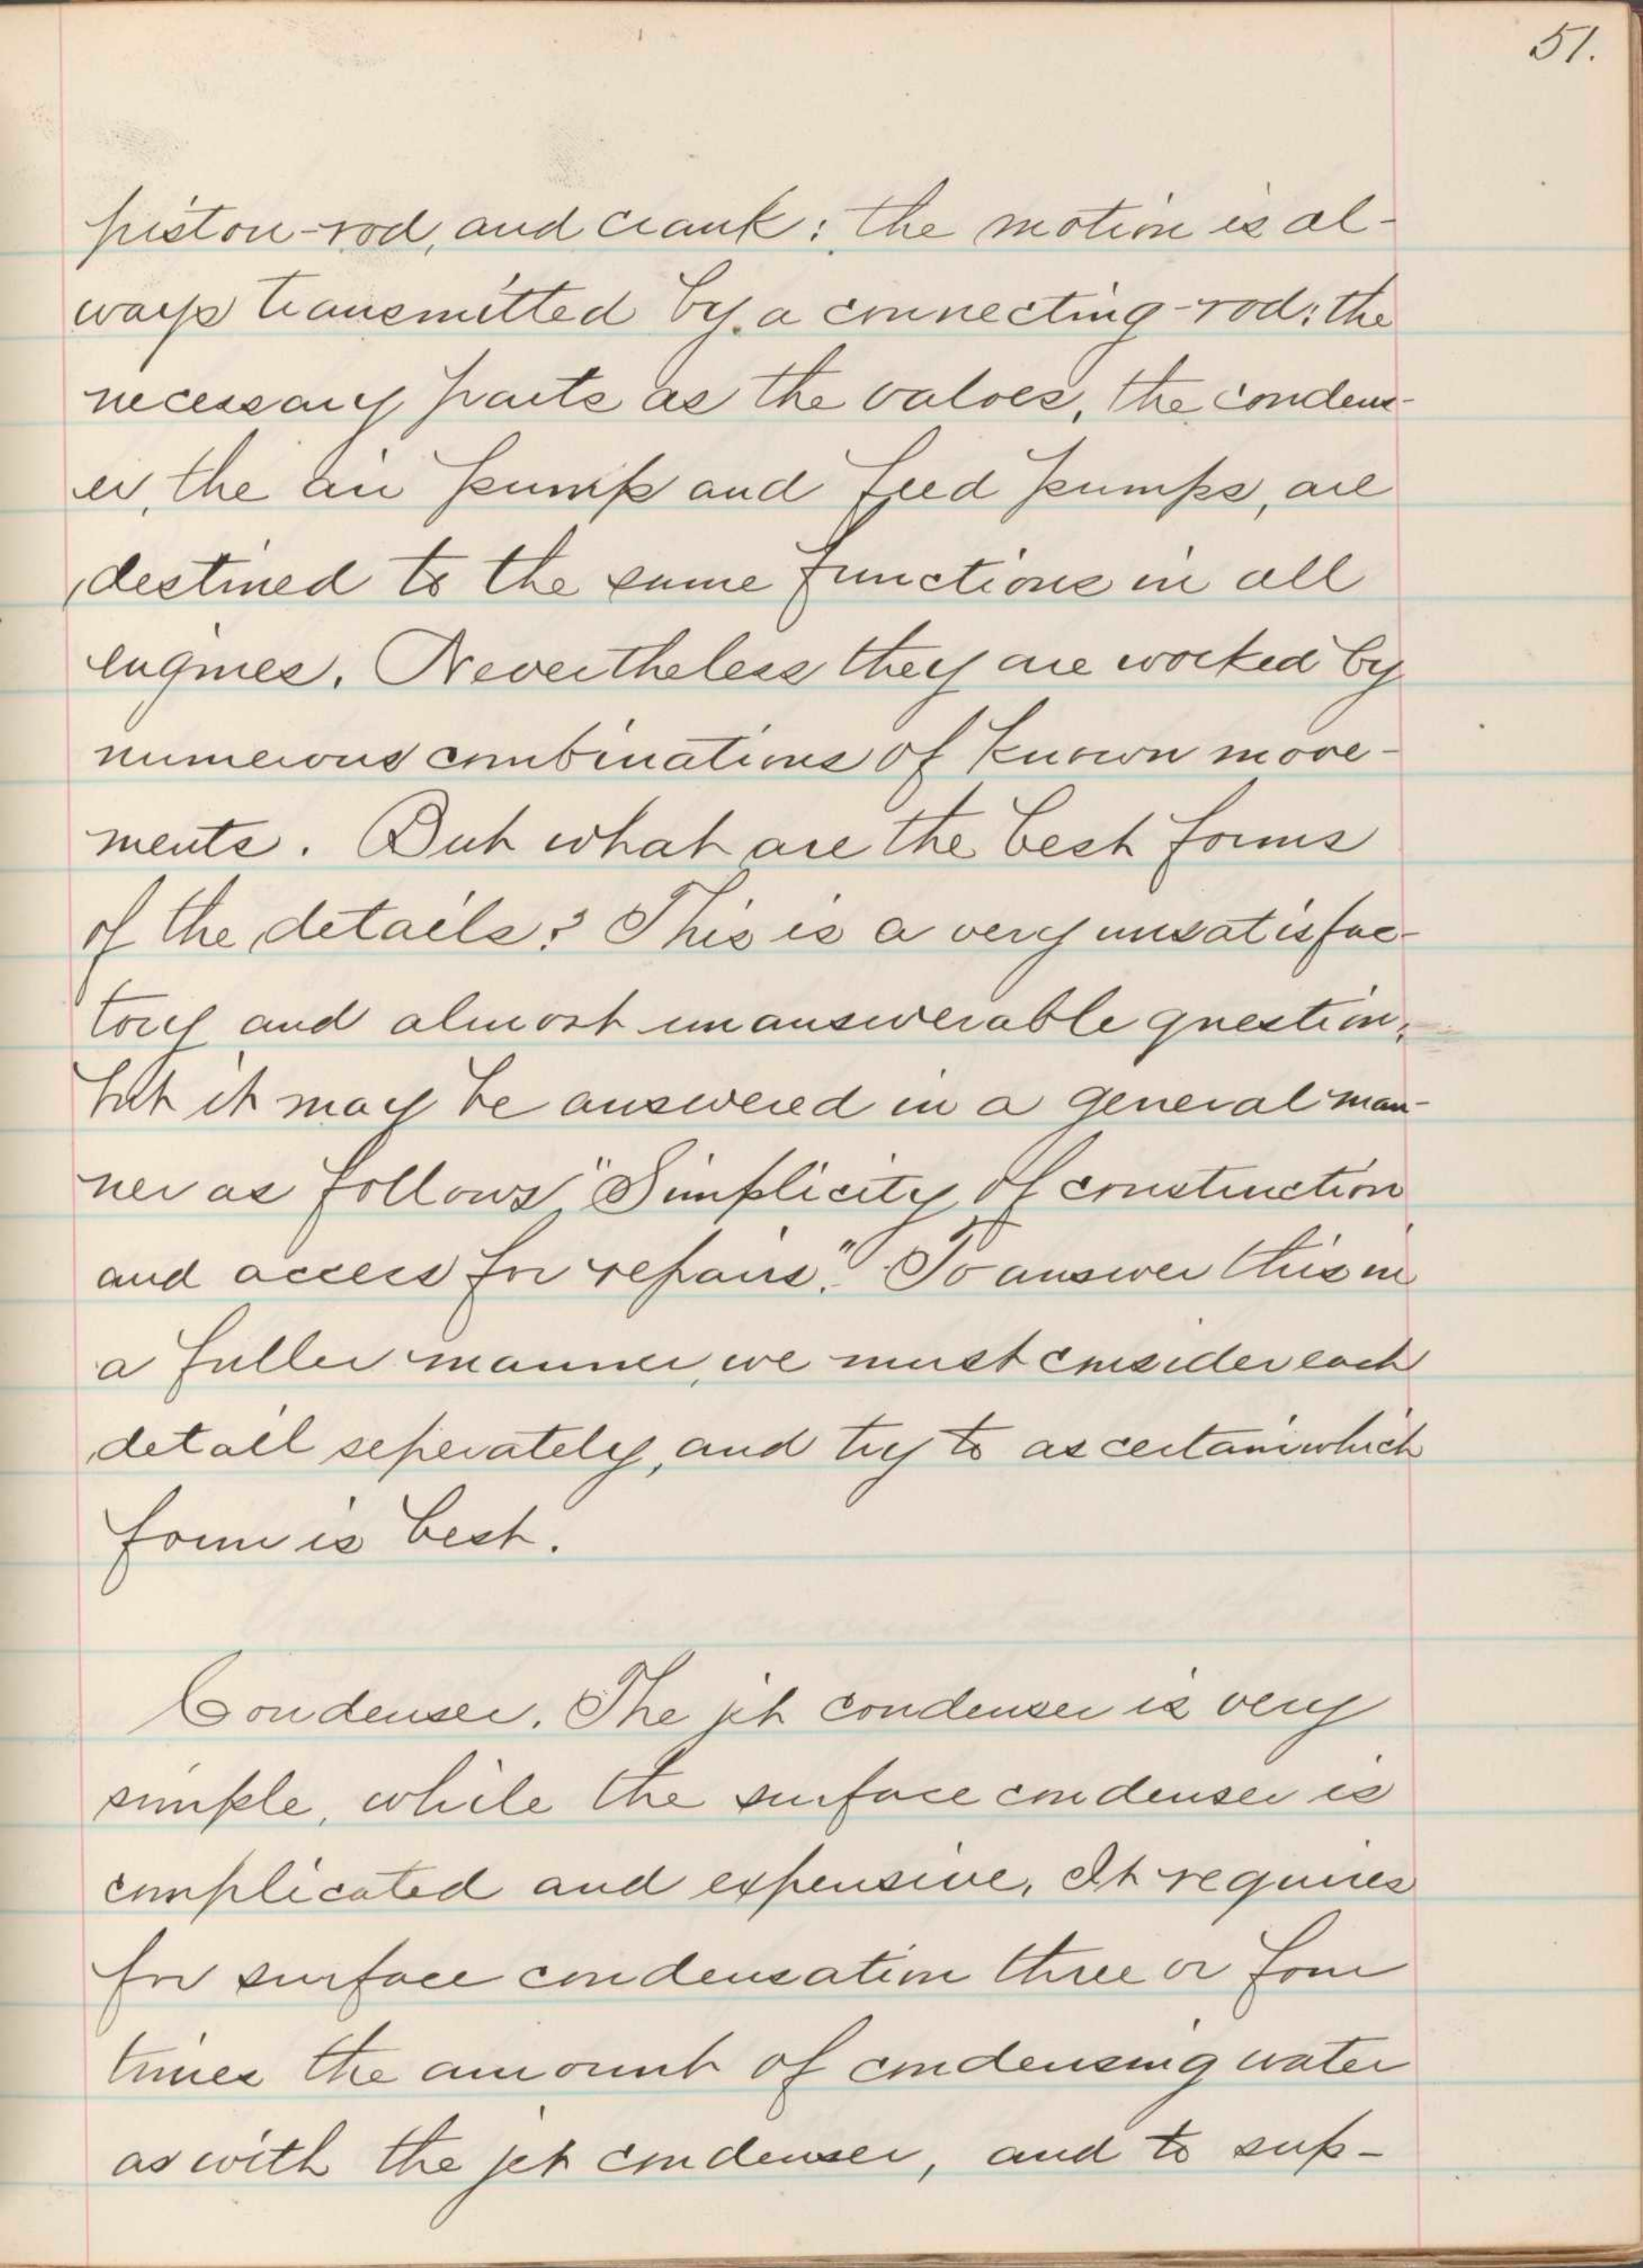 51.
piston-rod, and crank; the motion is al-
ways transmitted by a connecting-rod; the
necessary parts as the valves, the condens-
er, the air pump and feed pumps, are
destined to the same functions in all
engines. Nevertheless they are worked by
numerous combinations of known move-
ments. But what are the best forms
of the details? This is a very unsatisfac-
tory and almost unanswerable question,
but it may be answered in a general man-
ner as follows, "Simplicity of construction
and access for repairs." To answer this in
a fuller manner, we must consider each
detail seperately, and try to ascertain which
form is best.
Condenser. The jet condenser is very
simple, while the surface condenser is
complicated and expensive. It requires
for surface condensation three or four
times the amount of condensing water
as with the jet condenser, and to sup-